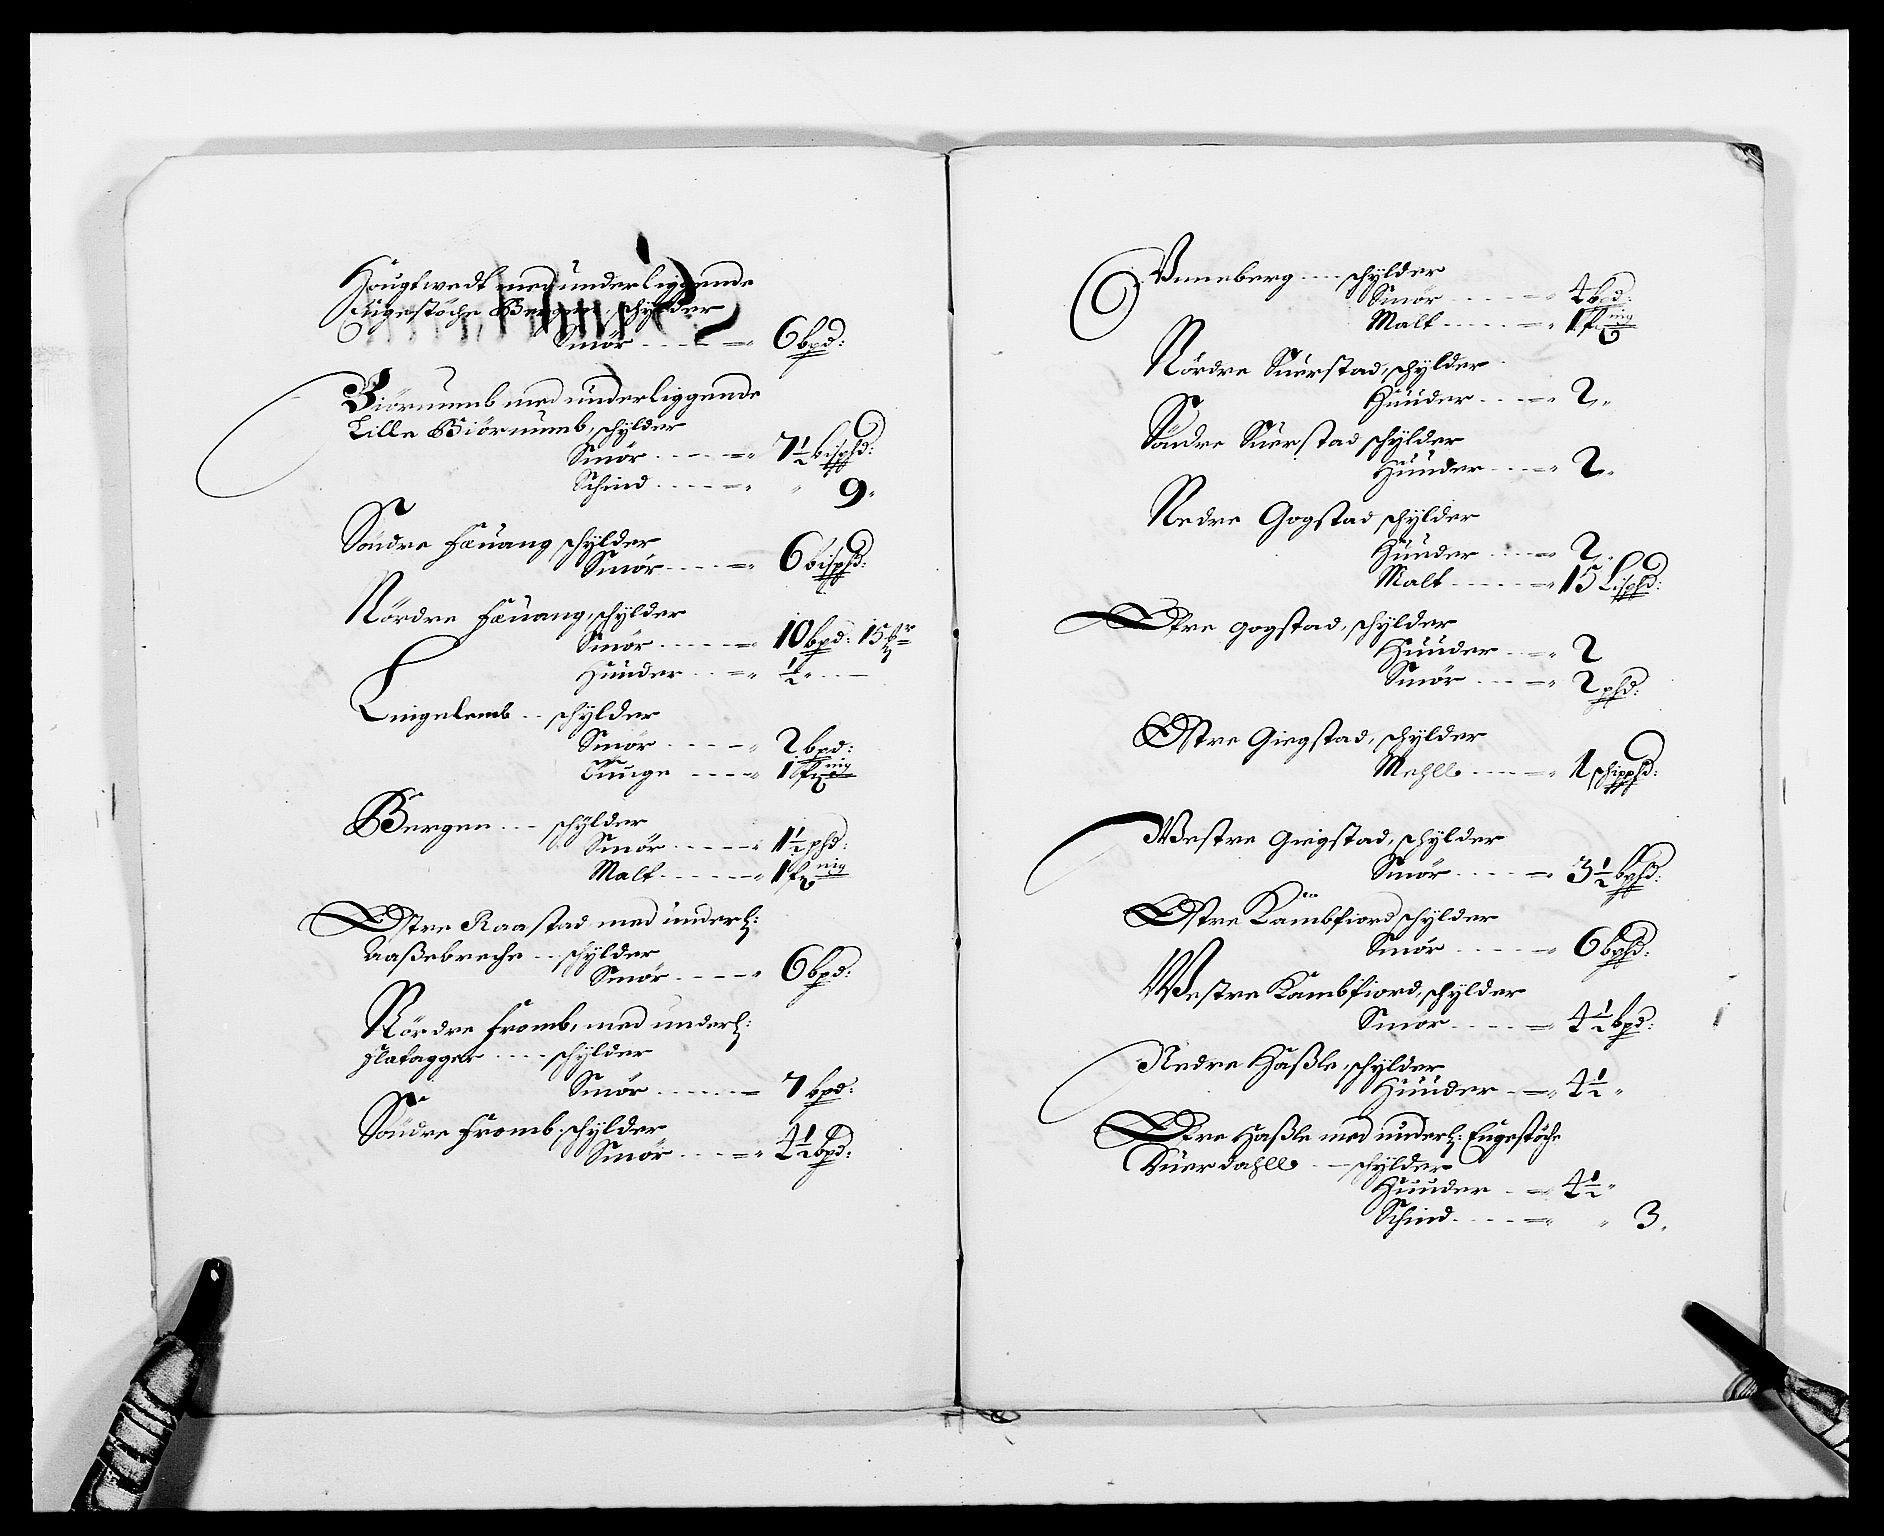 Hougtwedt med underliggende
Engestöche Bergen, schylder
Smör 6 bpd:
Biörnumb med underliggende
Lille Biörnumb, schylder
Smör 7½ bispd:
Schind 9
Söndre Fæuang schylder
Smör 6 bispd:
Nördre Fæuang, schylder
Smör 10 bpd: 15
Huuder ½
Lingelemb schylder
Smör 2 bpd:
Tunge 1
Bergen schylder
Smör 1½ phd:
Malt 1
Ostre Raastad med underl:
Aaßebreche schylder
Smör 6 bpd:
Nördre Fromb, med underl:
Flatagger schylder
Smör 7 bpd:
Söndre Fromb schylder
Smör 4½ bpd:
Unneberg schylder
Smör 4 bpd:
Malt 1
Nördre Suerstad, schylder
Huuder 2
Söndre Suerstad schylder
Huuder 2
Nedre Gogstad schylder
Huuder 2
Malt 15 Lispd:
Øfre gogstad, schylder
Huuder 2
Smör 2 phd:
Ostre Giegstad, schylder
Mehll 1 schippd:
Westre Giegstad, schylder
Smör 3½ bphd:
Ostre Kambfiord schylder
Smör 6 bphd:
Westre Kambfiord, schylder
Smör 4½ bpd:
Nedre Haßle, schylder
Huuder 4½
Øfre Haßle med underl: Engestöche
Kuerdahll schylder
Huuder 4½
Schind 3